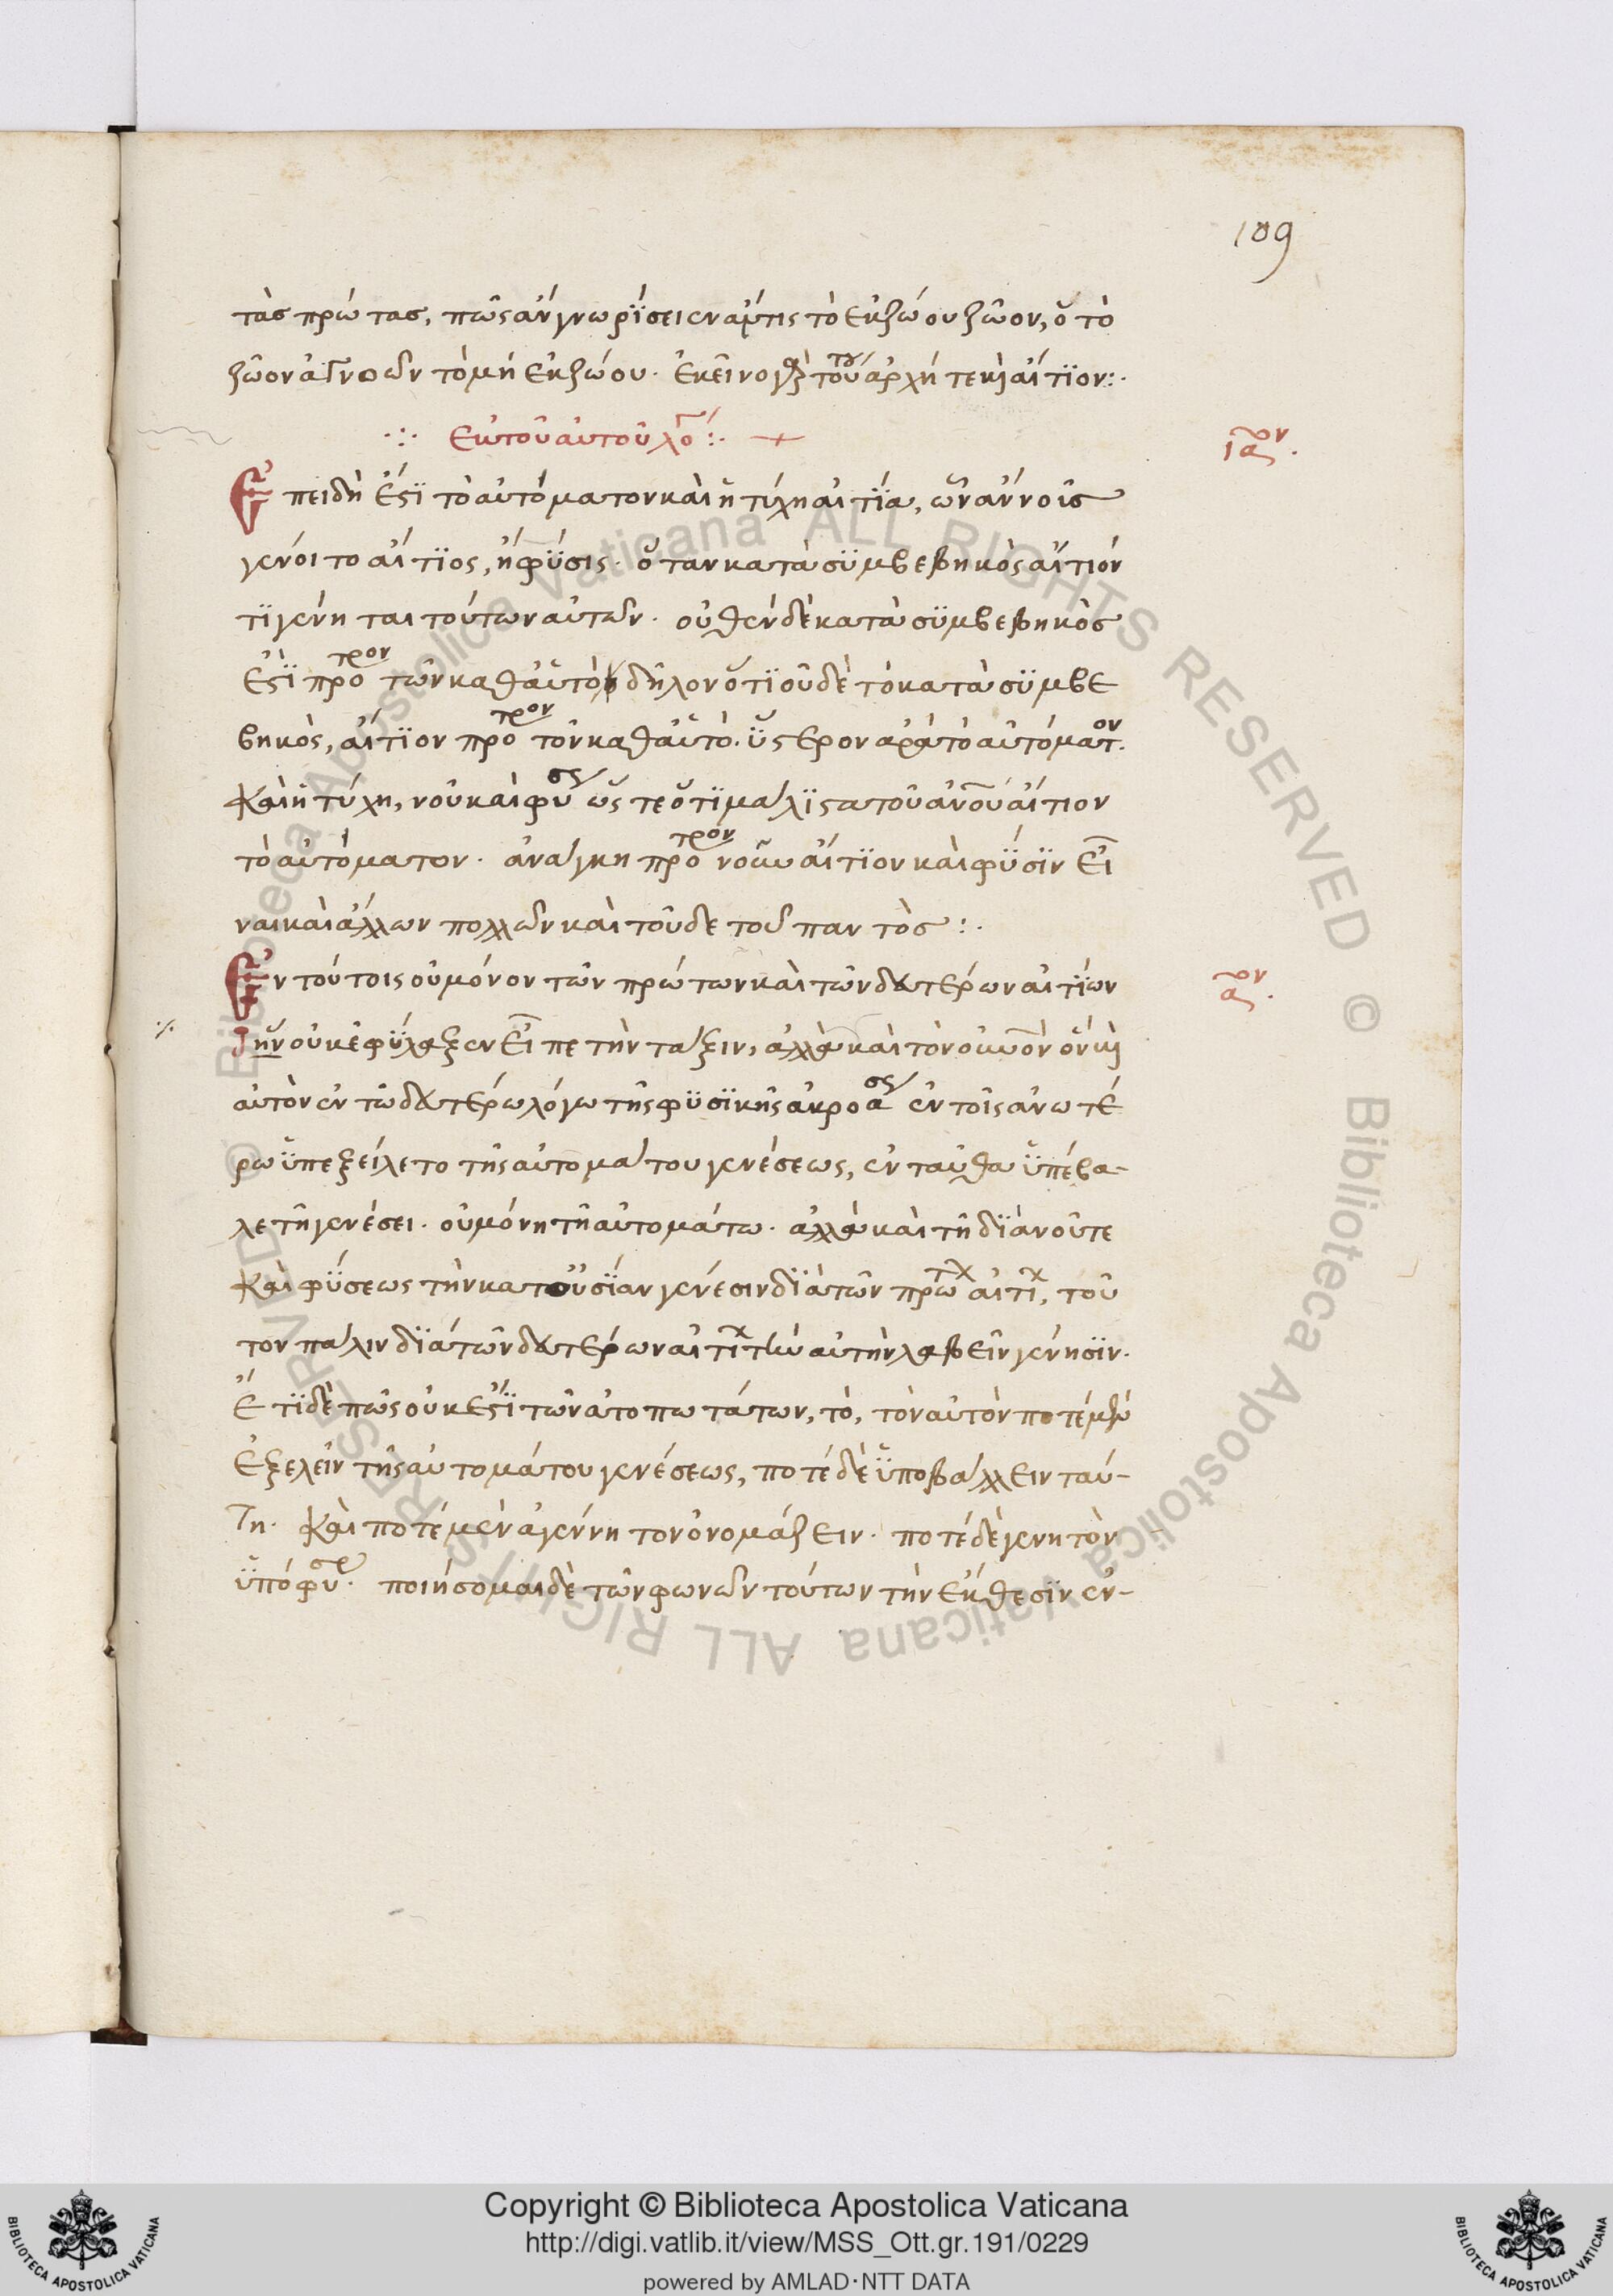 109
τὰς πρώτας, πῶς ἂν γνωρίσειεν ἄν τις τὸ ἐκ ζώου ζῶον, ὁ τὸ
ζῶον ἀγνοῶν τὸ μὴ ἐκ ζώου. ἐκεῖνο γὰρ τούτου ἀρχή τε καὶ αἴτϊον:.
∴ Εκ τοῦ αὐτοῦ λό:. +
Ἐπειδὴ ἐστὶ τὸ αὐτόματον καὶ ἡ τύχη αἰτΐα, ὧν ἂν νοῦς
γένοιτο αἴτϊος, ἢ φύσις. ὅταν κατὰ συμβεβηκὸς αἴτιόν
τι γένηται τούτων αὐτῶν. οὐθὲν δὲ κατὰ συμβεβηκὸς
ἐστὶ πρότερον τῶν καθ' αὑτὸ δῆλον ὅτι οὐδὲ τὸ κατὰ συμβε
βηκὸς, αἴτιον πρότερον τοῦ καθ' αὑτὸ. ὕστερον ἄρα τὸ αὐτόματον.
καὶ ἡ τύχη, νοῦ καὶ φύσεως ὥστε ὅτι μάλιστα τοῦ οὐνοῦ αἴτιον
τὸ αὐτόματον. ἀνάγκη πρότερον νοῦν αἴτιον καὶ φύσιν εἶ
ναι καὶ ἄλλων πολλῶν καὶ τοῦδε τοῦ παντὸς:.
Ἐν τούτοις οὐ μόνον τῶν πρώτων καὶ τῶν δευτέρων αἰτίων
ἣν οὐκ ἐφύλαξεν εἶπε τὴν τάξιν, ἀλλὰ καὶ τὸν οὐνὸν ὃν καὶ
αὐτὸν ἐν τῶ δευτέρω λόγω τῆς φυσικῆς ἀκροάσεως ἐν τοῖς ἀνωτέ
ρω ὑπεξείλετο τῆς αὐτομάτου γενέσεως, ἐνταῦθα ὑπέβα-
λε τῆ γενέσει. οὐ μόνη τῆ αὐτομάτω. ἀλλὰ καὶ τῆ διὰ νοῦ τε
καὶ φύσεως τὴν κατ' οὐσίαν γένεσιν διὰ τῶν πρώτων αἰτίων, τοῦ
τον πάλιν διὰ τῶν δευτέρων αἰτίων τὴν αὐτὴν λαβεῖν γένησιν.
ἔτι δὲ πῶς οὐκ ἐστὶ τῶν ἀτοπωτάτων, τὸ, τὸν αὐτὸν ποτὲ μὲν
ἐξελεῖν τῆς αὐτομάτου γενέσεως, ποτὲ δὲ ὑποβάλλειν ταύ-
τη. καὶ ποτὲ μὲν ἀγέννητον ὀνομάζειν. ποτὲ δὲ γενητὸν
ὑπὸ φύσεως. ποιήσομαι δὲ τῶν φωνῶν τούτων τὴν ἔκθεσιν ἐν-
Copyright © Biblioteca Apostolica Vaticana
http://digi.vatlib.it/view/MSS_Ott.gr.191/0229
powered by AMLAD·NTT DATA